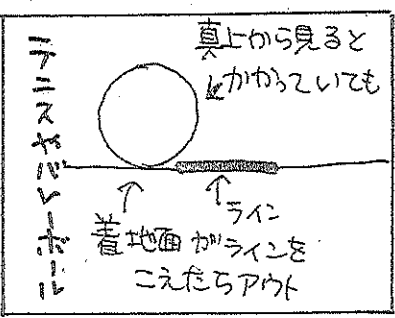 テニスやバレーボール
真上から見ると
かかっていても
ライン
着地面がラインを
こえたらアウト